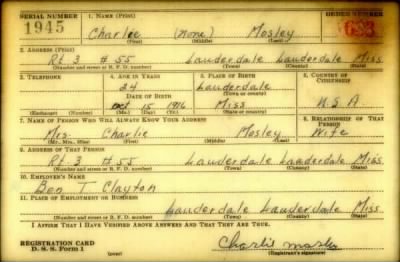 SERIAL NUMBER 1. NAME (Print) ORDER NUMBER
1945 Charlie (None) Mosley
(First) (Middle) (Last)
2. ADDRESS (Print)
Rt 3 # 55 Lauderdale Lauderdale Miss
(Number and street or R. F. D. number) (Town) (County) (State)
3. TELEPHONE 4. AGE IN YEARS 5. PLACE OF BIRTH 6. COUNTRY OF CITIZENSHIP
24 Lauderdale
DATE OF BIRTH (Town or county)
Oct 15 1916 Miss U.S.A.
(Exchange) (Number) (Mo.) (Day) (Yr.) (State or country)
7. NAME OF PERSON WHO WILL ALWAYS KNOW YOUR ADDRESS 8. RELATIONSHIP OF THAT PERSON
Mrs. Charlie Mosley Wife
(Mr., Mrs., Miss) (First) (Middle) (Last)
9. ADDRESS OF THAT PERSON
Rt. 3 # 55 Lauderdale Lauderdale Miss.
(Number and street or R. F. D. number) (Town) (County) (State)
10. EMPLOYER'S NAME
Ben T. Clayton
11. PLACE OF EMPLOYMENT OR BUSINESS
Lauderdale Lauderdale Miss
(Number and street or R. F. D. number) (Town) (County) (State)
I AFFIRM THAT I HAVE VERIFIED ABOVE ANSWERS AND THAT THEY ARE TRUE.
REGISTRATION CARD
D. S. S. Form 1 (over) Charlie
(Registrant's signature)